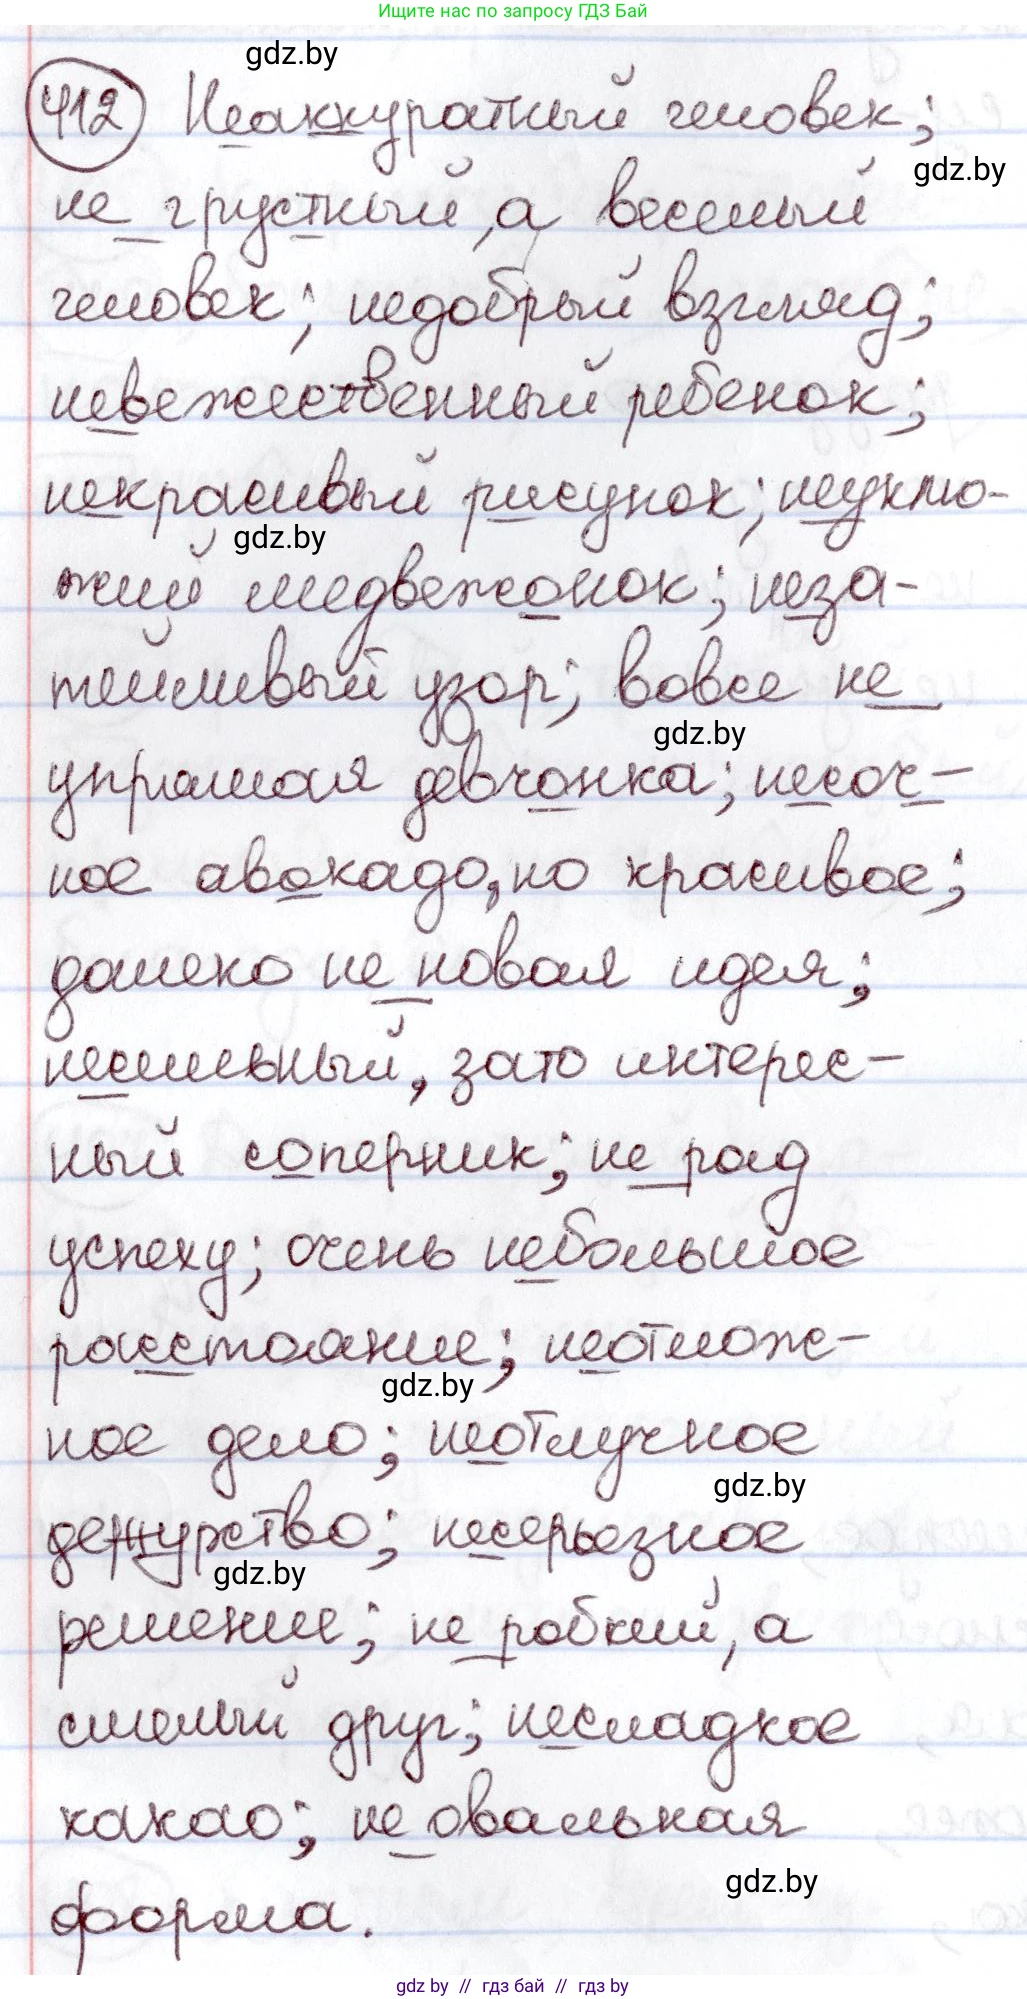 Ищите нас по запросу ГДЗ Бай
gdz.by
412 Неаккуратный человек;
gdz.by
не грустный, а веселый
человек; недобрый взгляд;
невежественный ребенок;
некрасивый рисунок; неуклю-
gdz.by
жий медвежонок; неза-
тейливый узор; вовсе не
gdz.by
упрямая девчонка; несоч-
ное авокадо, но красивое;
далеко не новая идея;
несильный, зато интерес-
ный соперник; не рад
успеху; очень небольшое
расстояние; неотлож-
gdz.by
ное дело; неотлучное
gdz.by
дежурство; несерьезное
gdz.by
решение; не робкий, а
смелый друг; несладкое
какао; не овальная
gdz.by
форма.
gdz by // гдз бай // gdz by